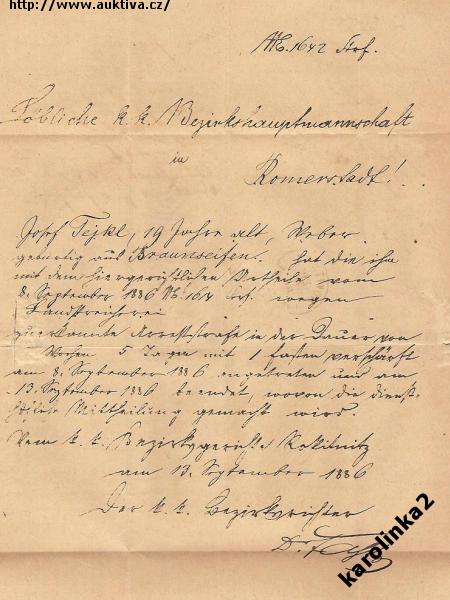 http://www.auktiva.cz/
No. 1642 Str.
Löbliche k. k. Bezirkshauptmannschaft
in
Römerstadt!
Josef Tejkl, 19 Jahre alt, Weber
gebürtig aus Braunseifen, hat die ihm
mit dem hiergerichtlichen Urtheile vom
8. September 1886 No. 1614 Str. wegen
Landstreicherei
zuerkannte Arreststrafe in der Dauer von
Wochen 5 Tagen mit 1 Fasten verschärft
am 8. September 1886 angetreten und am
13. September 1886 beendet, wovon die dienst-
höfliche Mittheilung gemacht wird.
Vom k. k. Bezirksgerichte Rokitnitz
am 13. September 1886
Der k. k. Bezirksrichter
Dr.
karolinka2